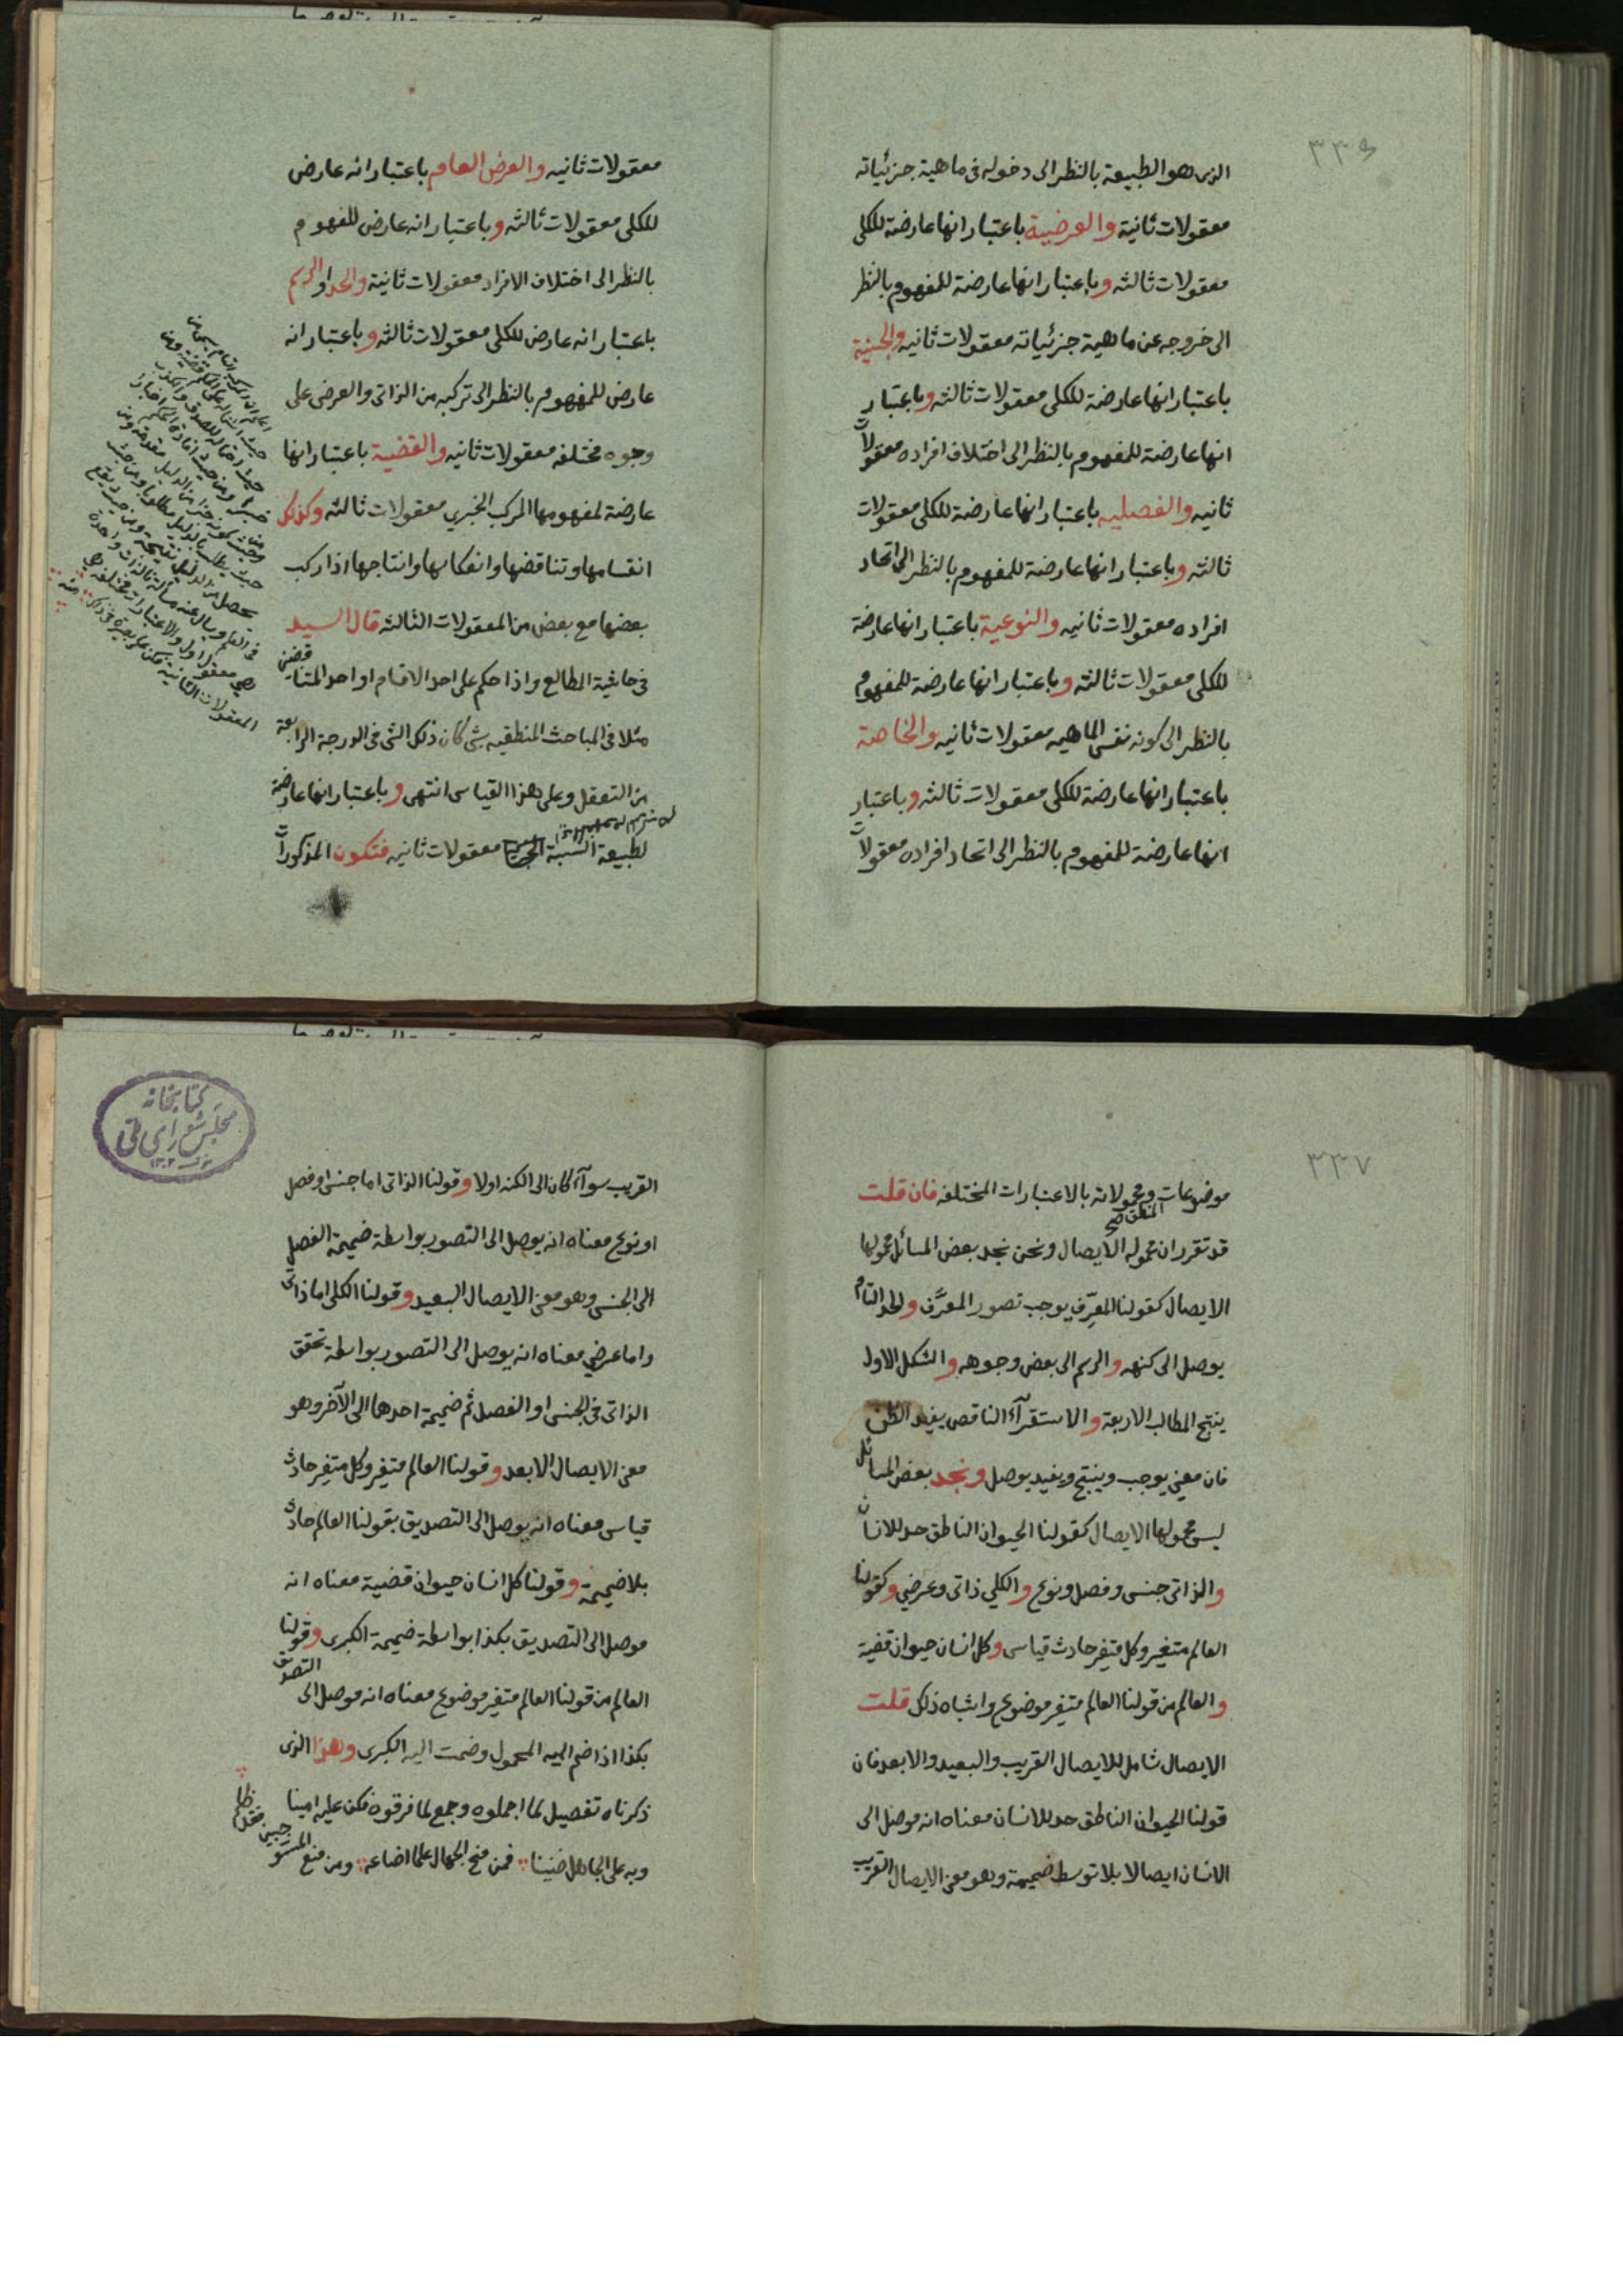 ٣٣٦
الذي هو الطبيعة بالنظر الى دخوله في ماهية جزئياته
معقولات ثانية والعرضية باعتبار انها عارضة للكلي
معقولات ثالثه وباعتبار انها عارضة للمفهوم بالنظر
الى خروجه عن ماهية جزئياته معقولات ثانيه والجنسية
باعتبار انها عارضة للكلي معقولات ثالثه وباعتبار
انها عارضة للمفهوم بالنظر الى اختلاف افراده معقولات
ثانيه والفصليه باعتبار انها عارضة للكلي معقولات
ثالثه وباعتبار انها عارضة للمفهوم بالنظر الى اتحاد
افراده معقولات ثانيه والنوعية باعتبار انها عارضة
للكلي معقولات ثالثه وباعتبار انها عارضة للمفهوم
بالنظر الى كونه نفس الماهيه معقولات ثانيه والخاصة
باعتبار انها عارضة للكلي معقولات ثالثه وباعتبار
انها عارضة للمفهوم بالنظر الى اتحاد افراده معقولات
معقولات ثانيه والعرض العام باعتبار انه عارض
للكلي معقولات ثالثه وباعتبار انه عارض للمفهوم
بالنظر الى اختلاف الافراد معقولات ثانية والحد والرسم
باعتبار انه عارض للكلي معقولات ثالثه وباعتبار انه
عارض للمفهوم بالنظر الى تركبه من الذاتي والعرضي على
وجوه مختلفه معقولات ثانيه والقضية باعتبار انها
عارضة لمفهومها المركب الخبري معقولات ثالثه وكذلك
انقسامها وتناقضها وانعكاسها وانتاجها اذا ركب
بعضها مع بعض من المعقولات الثالثه قال السيد
في حاشية المطالع واذا حكم على احد الاقسام او احد المتناقضين
مثلا في المباحث المنطقيه بشئ كان ذلك الشئ في الدرجة الرابعة
من التعقل وعلى هذا القياس انتهى وباعتبار انها عارضة
لطبيعة النسبة معقولات ثانيه فتكون المذكورات
٣٣٧
موضوعات ومحمولاته بالاعتبارات المختلفه فان قلت
قد تقرر ان محمول المنطق صح الايصال ونحن نجد بعض المسائل محمولها
الايصال كقولنا المعرِّف يوجب تصور المعرَّف والحد التام
يوصل الى كنهه والرسم الى بعض وجوهه والشكل الاول
ينتج المطالب الاربعة والاستقرآء الناقص يفيد الظن
فان معنى يوجب وينتج ويفيد يوصل ونجد بعض المسائل
ليس محمولها الايصال كقولنا الحيوان الناطق حد للانسان
والذاتي جنس وفصل ونوع والكلي ذاتي وعرضي وكقولنا
العالم متغير وكل متغير حادث قياس وكل انسان حيوان قضية
والعالم من قولنا العالم متغير موضوع واشباه ذلك قلت
الايصال شامل للايصال القريب والبعيد والابعد فان
قولنا الحيوان الناطق حد للانسان معناه انه موصل الى
الانسان ايصالا بلا توسط ضميمة وهو معنى الايصال القريب
كتابخانه
مجلس شورای ملی
القريب سوآء كان الى الكنه اولا وقولنا الذاتي اما جنس او فصل
او نوع معناه انه يوصل الى التصور بواسطة ضميمة الفصل
الى الجنس وهو معنى الايصال البعيد وقولنا الكلي اما ذاتي
واما عرضي معناه انه يوصل الى التصور بواسطة تحقق
الذاتي في الجنس او الفصل ثم ضميمة احدهما الى الآخر وهو
معنى الايصال الابعد وقولنا العالم متغير وكل متغير حادث
قياس معناه انه يوصل الى التصديق بقولنا العالم حادث
بلا ضميمة وقولنا كل انسان حيوان قضية معناه انه
موصل الى التصديق بكذا بواسطة ضميمة الكبرى وقولنا
العالم من قولنا العالم متغير موضوع معناه انه موصل الى التصديق
بكذا اذا ضم اليه المحمول وضمت اليه الكبرى وهذا الذي
ذكرناه تفصيل لما اجملوه وجمع لما فرقوه فكن عليه امينا
وبه على الجاهل ضنينا فمن منح الجهال علما اضاعه ومن منع المستوجبين فقد ظلم